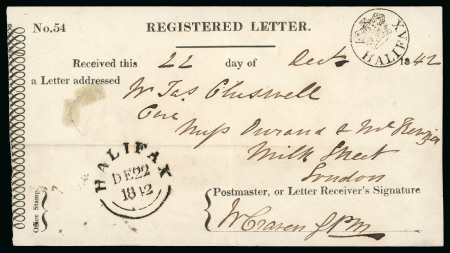 No.54 REGISTERED LETTER.
HALIFAX
Received this 22 day of Decr 1842
a Letter addressed
Mr Jas
Care
Milk Street
London
HALIFAX
DE22
1842
Office Stamp.
Postmaster, or Letter Receiver's Signature
W Craven